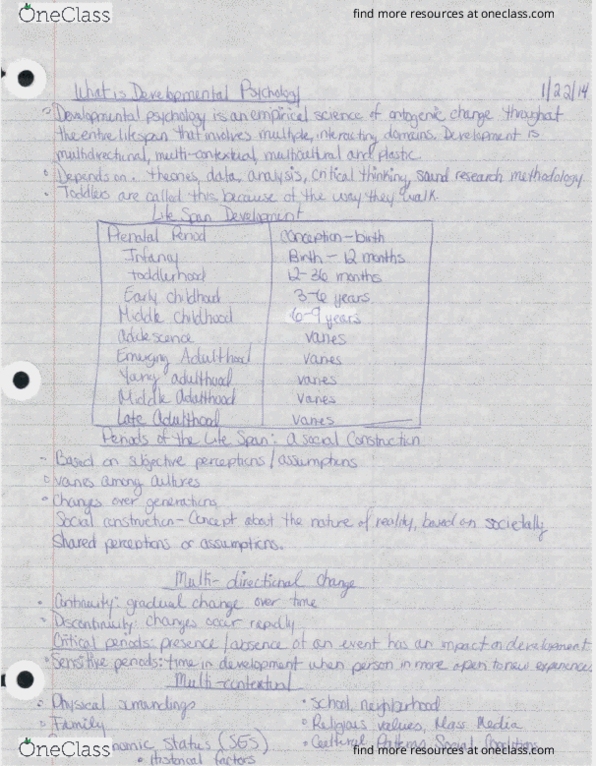 OneClass
find more resources at oneclass.com
What is Developmental Psychology
1/22/14
Developmental psychology is an empirical science of ontogenic change throughout
the entire lifespan that involves multiple, interacting domains. Development is
multidirectional, multi-contextual, multicultural and plastic.
Depends on: theories, data, analysis, critical thinking, sound research methodology
Toddlers are called this because of the way they walk.
Life Span Development
Prenatal Period Conception - birth
Infancy Birth - 12 months
toddlerhood 12-36 months
Early childhood 3-6 years
Middle Childhood 6-9 years
adolescence varies
Emerging Adulthood varies
Young adulthood varies
Middle Adulthood varies
Late Adulthood varies
Periods of the Life Span: a social Construction
Based on subjective perceptions/assumptions
varies among cultures
Changes over generations
Social construction - Concept about the nature of reality, based on societally
shared perceptions or assumptions.
Multi-directional change
Continuity: gradual change over time
Discontinuity: changes occur rapidly
Critical periods: presence/absence of an event has an impact on development
Sensitive periods: time in development when person in more open to new experiences
Multi-contextual
Physical surroundings
School, neighborhood
Family
Religious values, Mass Media
nomic Status (SES)
Cultural Social Conditions
Historical factors
OneClass
find more resources at oneclass.com